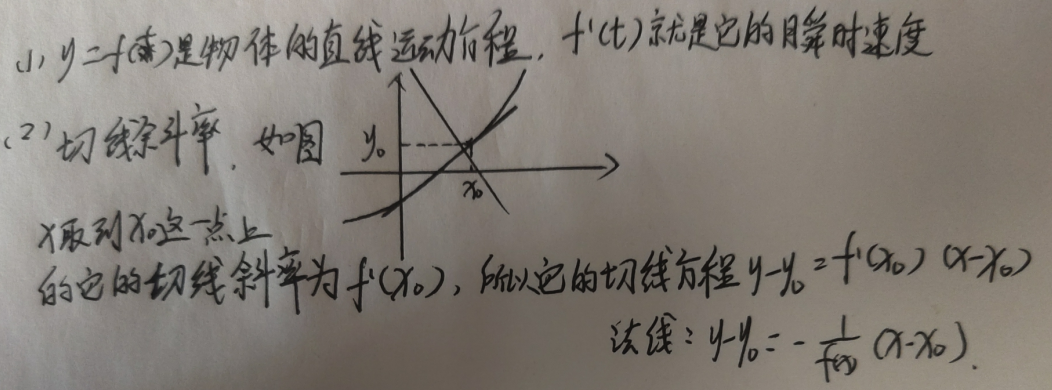 (1) y=f(t)是物体的直线运动方程, f'(t)就是它的瞬时速度
(2) 切线斜率, 如图
y₀
x₀
x取到x₀这一点上
的它的切线斜率为f'(x₀), 所以它的切线方程y-y₀=f'(x₀)(x-x₀)
法线: y-y₀=-1/f'(x₀)(x-x₀).